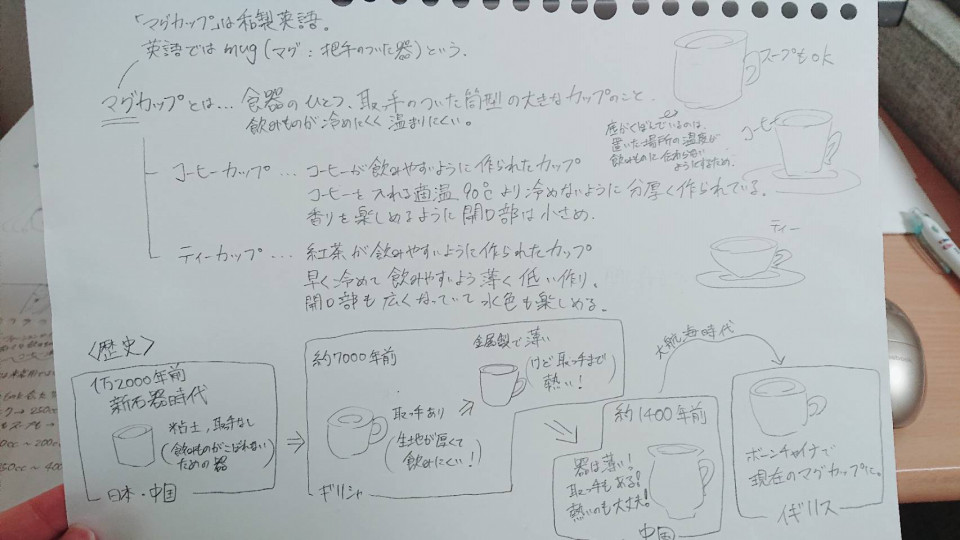 「マグカップ」は和製英語。
英語ではmug(マグ:把手のついた器)という.
マグカップとは… 食器のひとつ. 取っ手のついた筒型の大きなカップのこと.
飲みものが冷めにくく温まりにくい。
スープもOK
底がくぼんでいるのは、
置いた場所の温度が
飲みものに伝わらない
ようにするため.
コーヒー
コーヒーカップ … コーヒーが飲みやすいように作られたカップ
コーヒーを入れる適温90℃より冷めないように分厚く作られている.
香りを楽しめるように開口部は小さめ.
ティー
ティーカップ … 紅茶が飲みやすいように作られたカップ
早く冷めて飲みやすいよう薄く低い作り.
開口部も広くなっていて水色も楽しめる。
〈歴史〉
1万2000年前
新石器時代
粘土, 取手なし
(飲みものがこぼれない
ための器)
日本・中国
約7000年前
取っ手あり
(生地が厚くて
飲みにくい!)
金属製で薄い
(けど取っ手まで
熱い!)
ギリシャ
約1400年前
器は薄い!
取っ手もある!
熱いのも大丈夫!
中国
大航海時代
ボーンチャイナで
現在のマグカップに。
イギリス